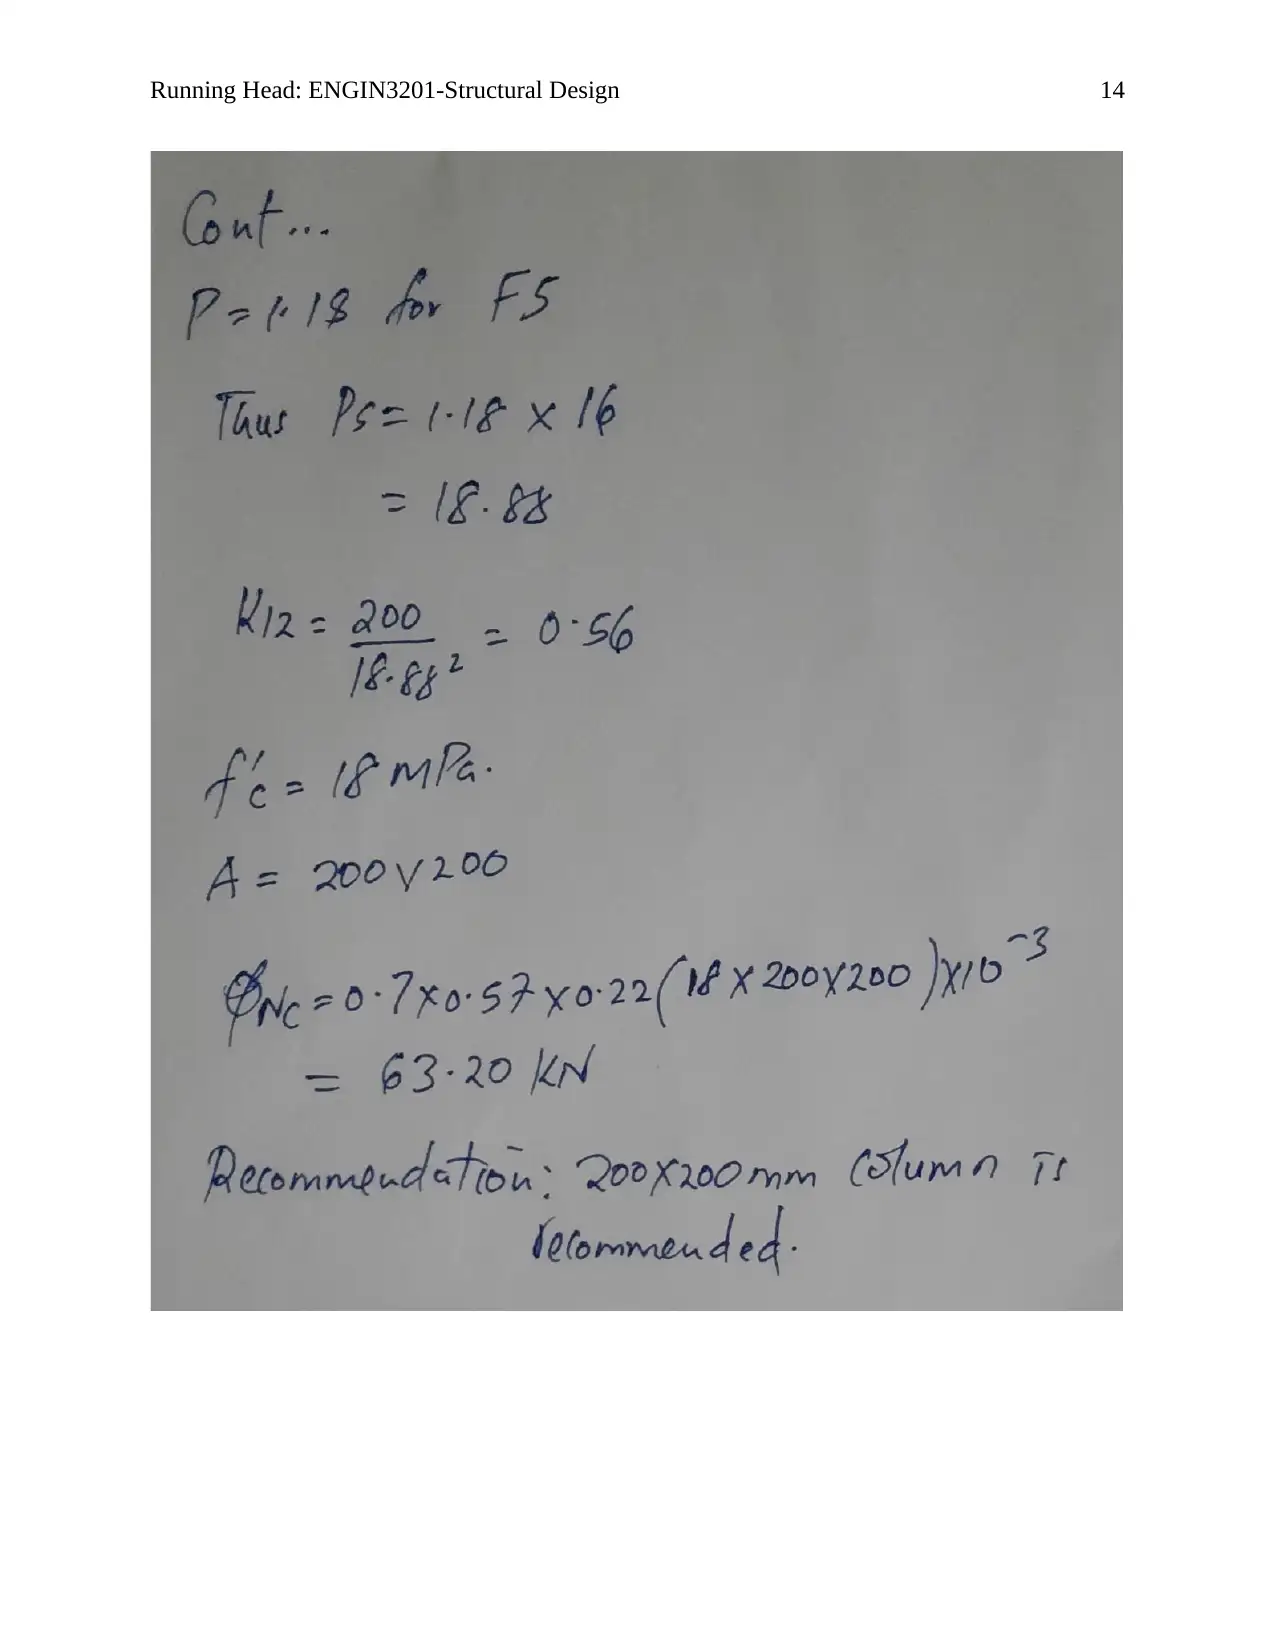 Running Head: ENGIN3201-Structural Design 14
Cont...
P = 1.18 for F5
Thus Ps = 1.18 x 16
= 18.88
K12 = 200 / 18.88² = 0.56
f'c = 18 mPa.
A = 200 x 200
ϕNc = 0.7 x 0.57 x 0.22 (18 x 200 x 200) x 10⁻³
= 63.20 KN
Recommendation: 200x200mm column is
recommended.